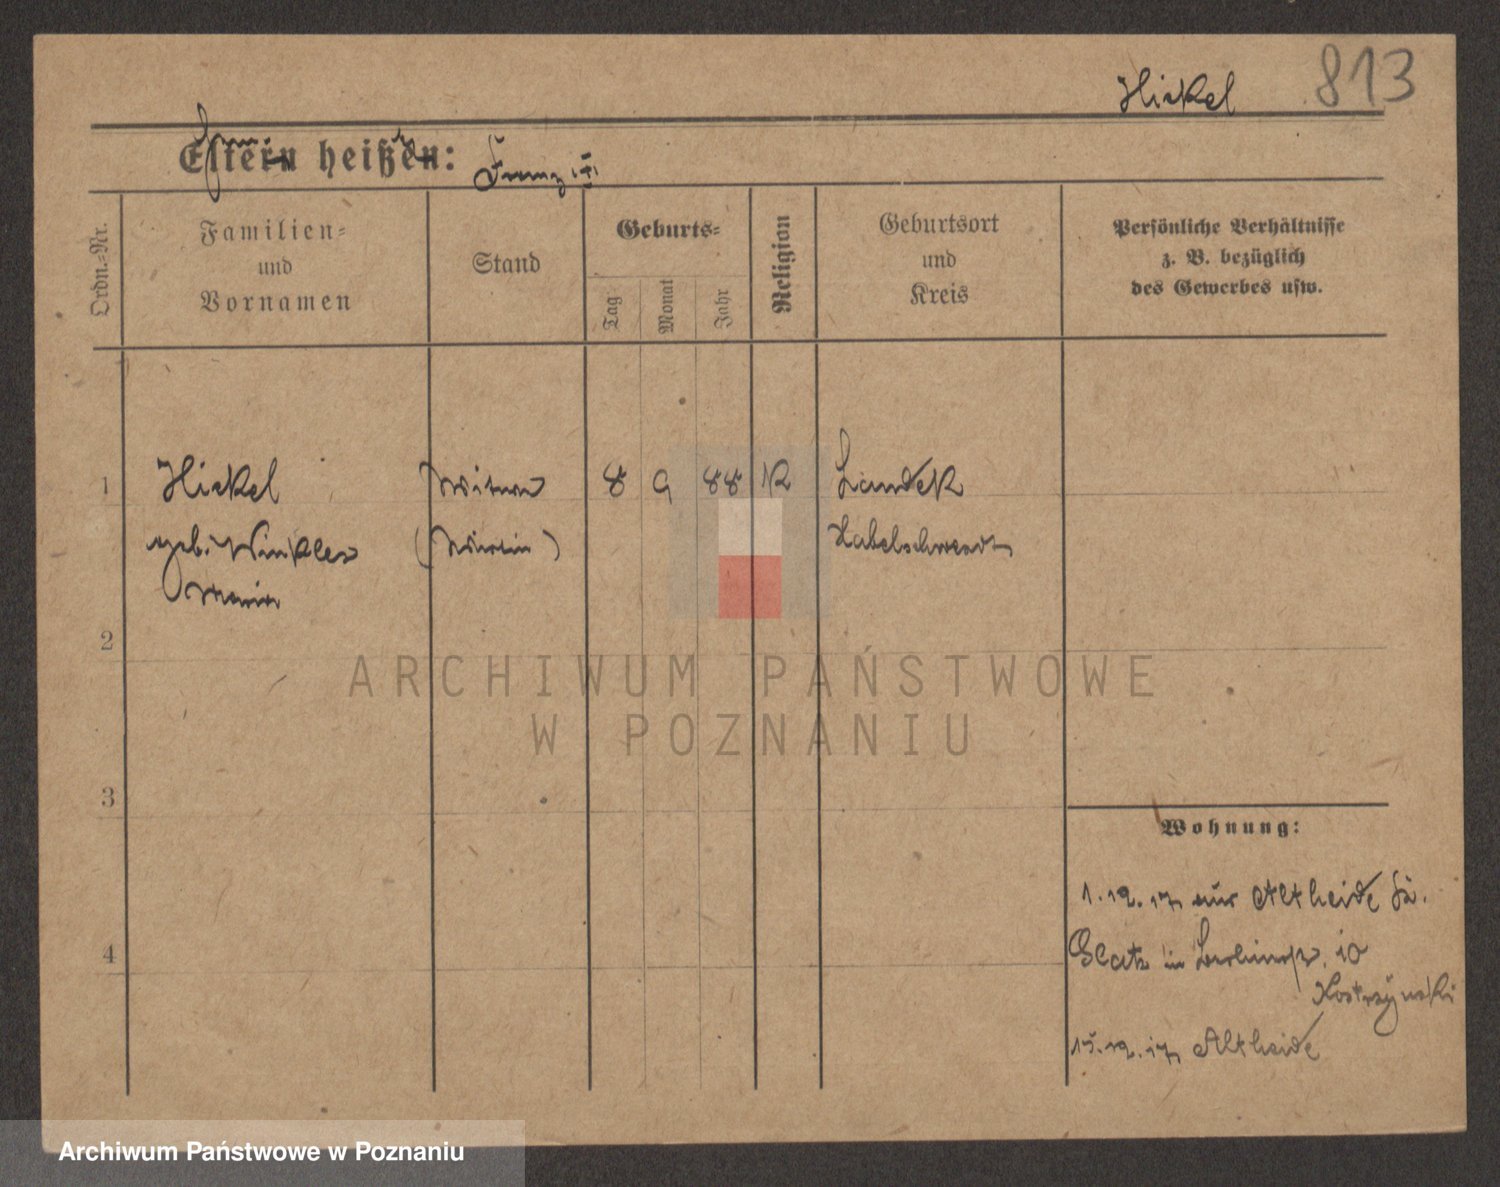 Hickel 813
Eltern heißen: Franz
Ordn.-Nr.
Familien-
und
Vornamen
Stand
Geburts-
Tag
Monat
Jahr
Religion
Geburtsort
und
Kreis
Persönliche Verhältnisse
z. B. bezüglich
des Gewerbes usw.
1 Hickel Witwe 8 9 88 K Landeck
geb. Winkler (Wirtin) Habelschwerdt
Maria
2
ARCHIWUM PAŃSTWOWE
W POZNANIU
3
Wohnung:
1.12.17 aus Altheide
4 Glatz in 10
Kostrzynski
15.12.17 Altheide
Archiwum Państwowe w Poznaniu